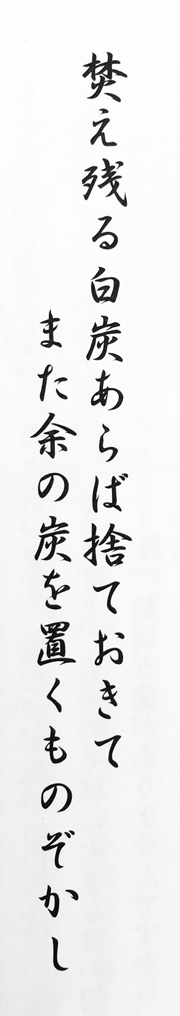 焚え残る白炭あらば捨ておきて
また余の炭を置くものぞかし